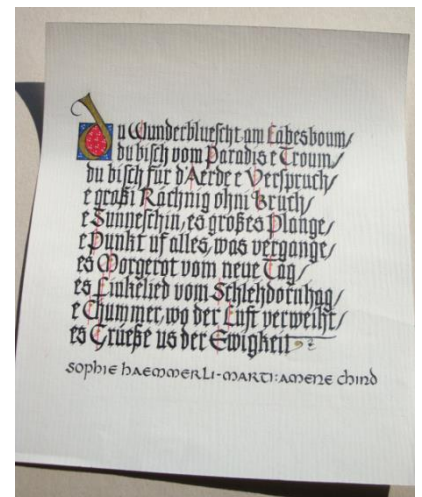 Du Wunderbluescht am Läbesboum/
du bisch vom Paradis e Troum/
du bisch für d'Aerde e Verspruch/
e großi Rächnig ohni Bruch/
e Sunneschin, es großes Plange/
e Punkt uf alles, was vergange/
es Morgerot vom neue Tag/
es Finkelied vom Schlehdornhag/
e Chummer, wo der Luft verweiht/
es Grueße us der Ewigkeit
SOPHIE HAEMMERLI-MARTI: AMENE CHIND